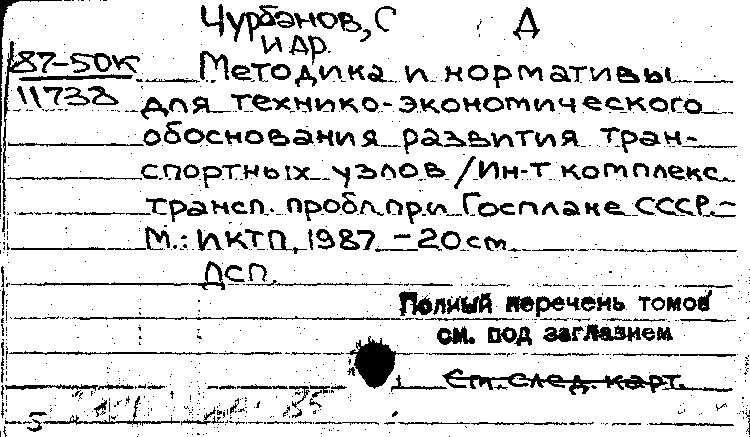 Чурбанов, С Д
и др.
87-50К Методика и нормативы
11738 для технико-экономического
обоснования развития тран-
спортных узлов / Ин-т комплекс.
трансп. пробл. при Госплане СССР. -
М.: ИКТП, 1987. - 20 см.
ДСП.
Полный перечень томов
см. под заглавием
См. след. карт.
5